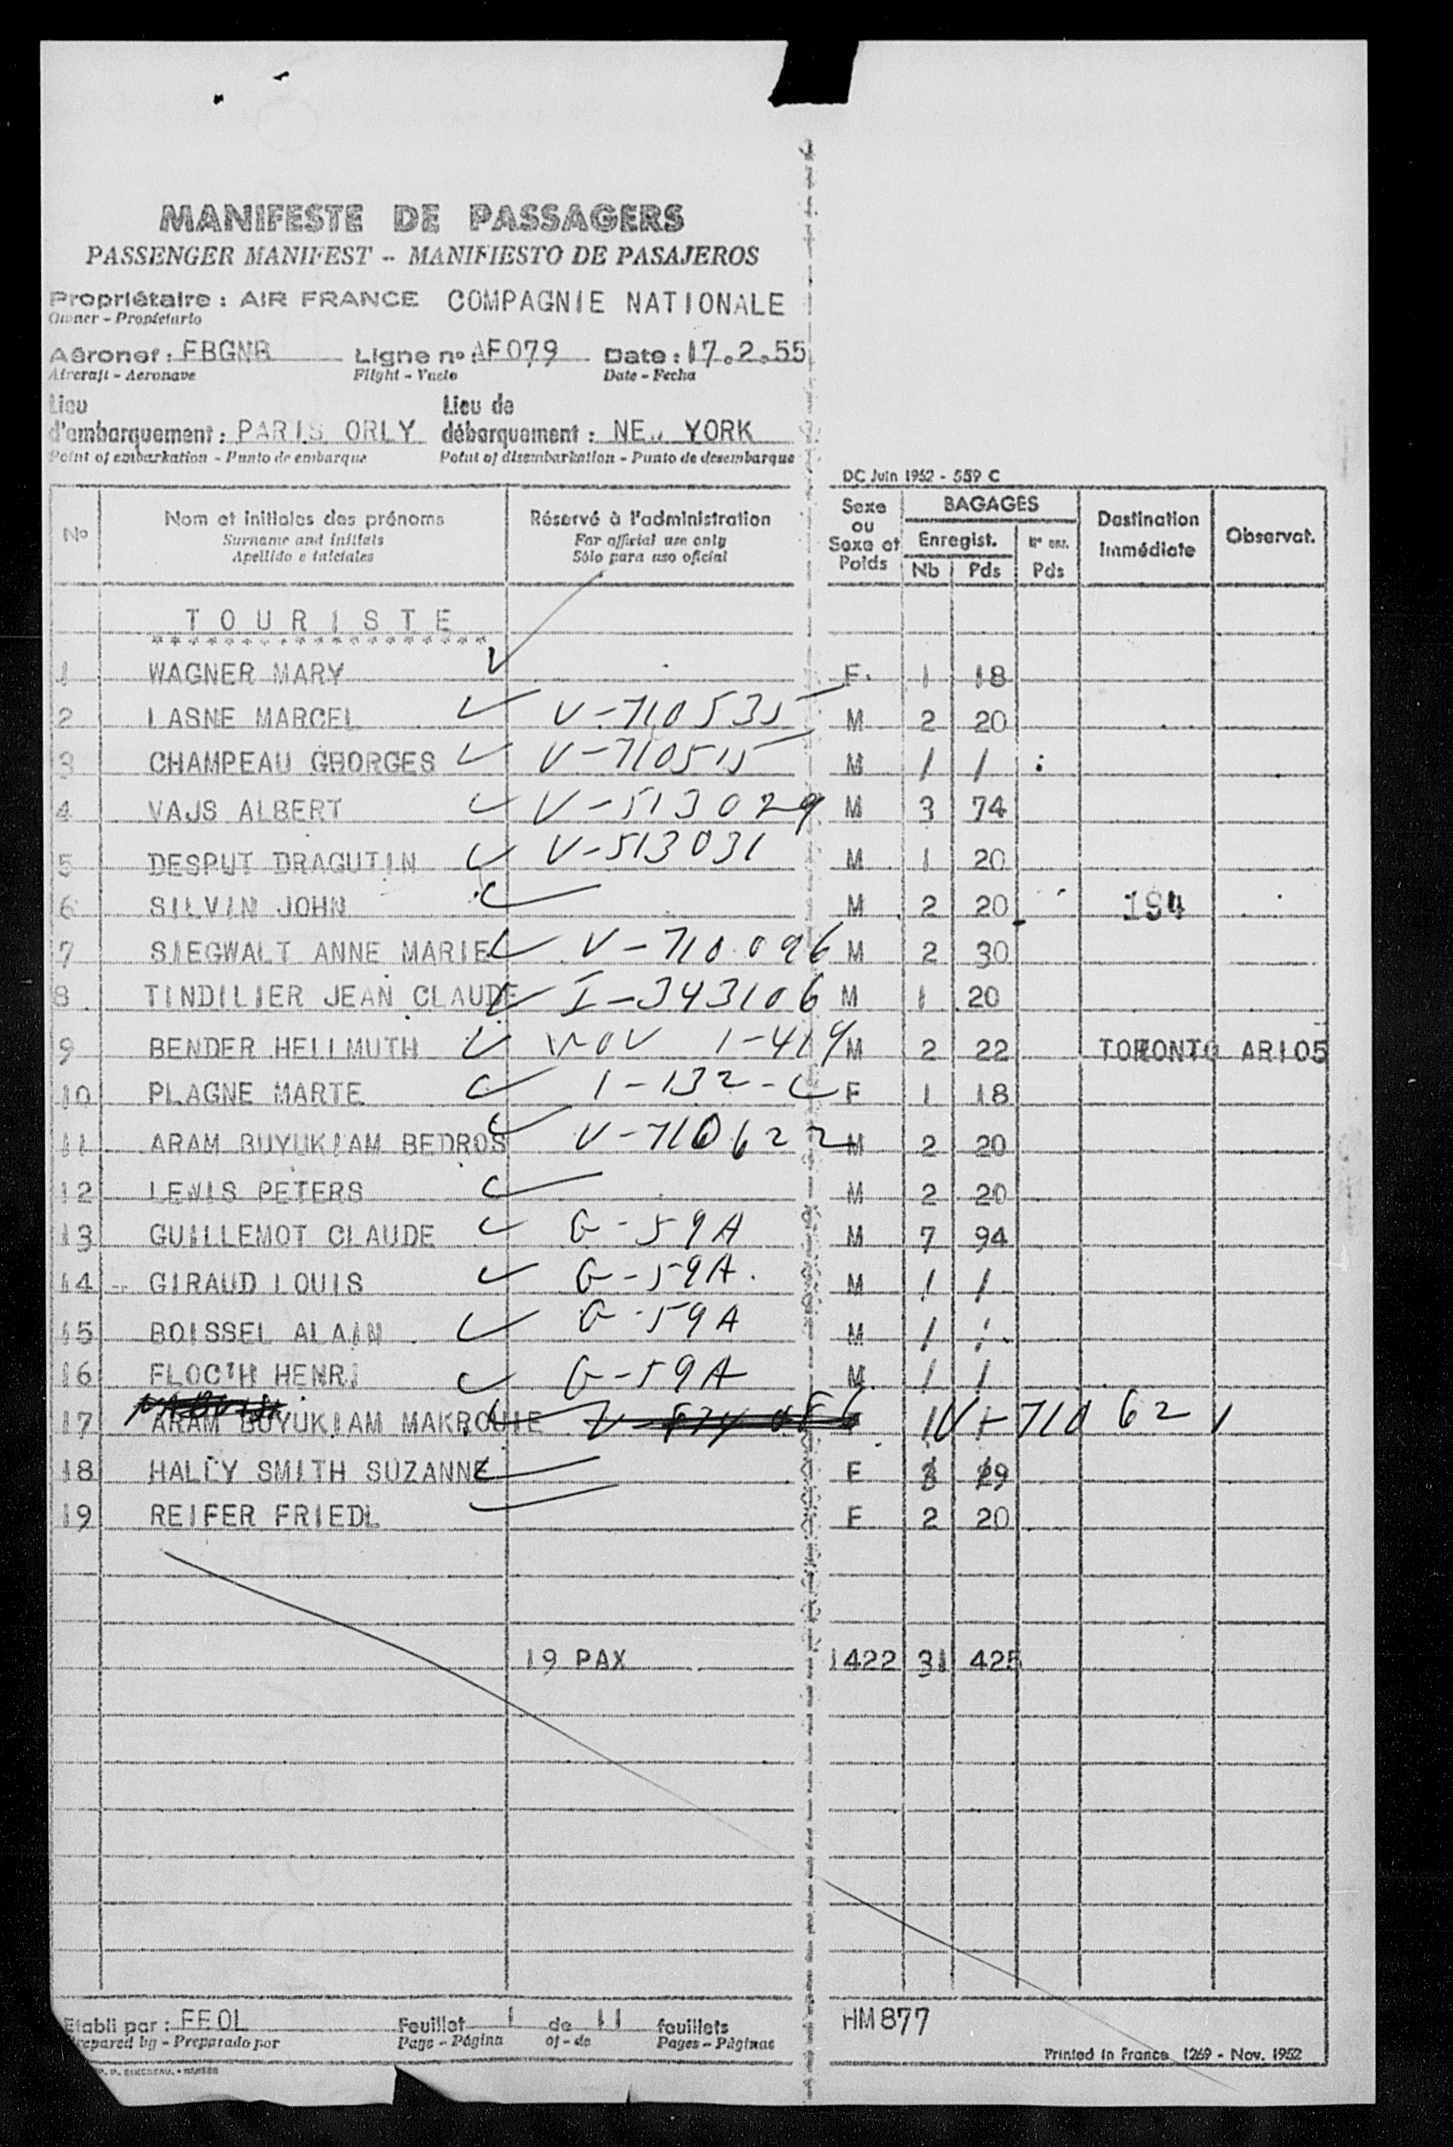 MANIFESTE DE PASSAGERS
PASSENGER MANIFEST - MANIFIESTO DE PASAJEROS
Propriétaire : AIR FRANCE COMPAGNIE NATIONALE
Owner - Propietario
Aéronef : FBGNB Ligne no : AF079 Date : 17.2.55
Aircraft - Aeronave Flight - Vuelo Date - Fecha
Lieu Lieu de
d'embarquement : PARIS ORLY débarquement : NEW YORK
Point of embarkation - Punto de embarque Point of disembarkation - Punto de desembarque
DC Juin 1952 - 559 C
No Nom et initiales des prénoms Réservé à l'administration Sexe ou Sexe et Poids BAGAGES Destination Immédiate Observat.
Surname and initials For official use only Enregist. Nn enr.
Apellido e iniciales Sólo para uso oficial Nb Pds Pds
TOURISTE
*****************
1 WAGNER MARY F. 1 18
2 LASNE MARCEL V-710535 M 2 20
3 CHAMPEAU GEORGES V-710515 M / / :
4 VAJS ALBERT V-513029 M 3 74
5 DESPUT DRAGUTIN V-513031 M 1 20
6 SILVIN JOHN M 2 20 194
7 SIEGWALT ANNE MARIE V-710096 M 2 30
8 TINDILIER JEAN CLAUDE I-343106 M 1 20
9 BENDER HELLMUTH 1-419 M 2 22 TORONTO AR105
10 PLAGNE MARTE 1-132-C F 1 18
11 ARAM BUYUKIAM BEDROS V-710622 M 2 20
12 LEWIS PETERS M 2 20
13 GUILLEMOT CLAUDE G-59A M 7 94
14 GIRAUD LOUIS G-59A. M / /
15 BOISSEL ALAIN G-59A M / /
16 FLOC'H HENRI G-59A M / /
17 ARAM BUYUKIAM MAKROUIE V-710621
18 HALEY SMITH SUZANNE F 3 29
19 REIFER FRIEDL F 2 20
19 PAX 1422 31 425
Etabli par : FEOL Feuillet 1 de 11 feuillets HM877
Prepared by - Preparado por Page - Página of - de Pages - Páginas
Printed in France 1269 - Nov. 1952